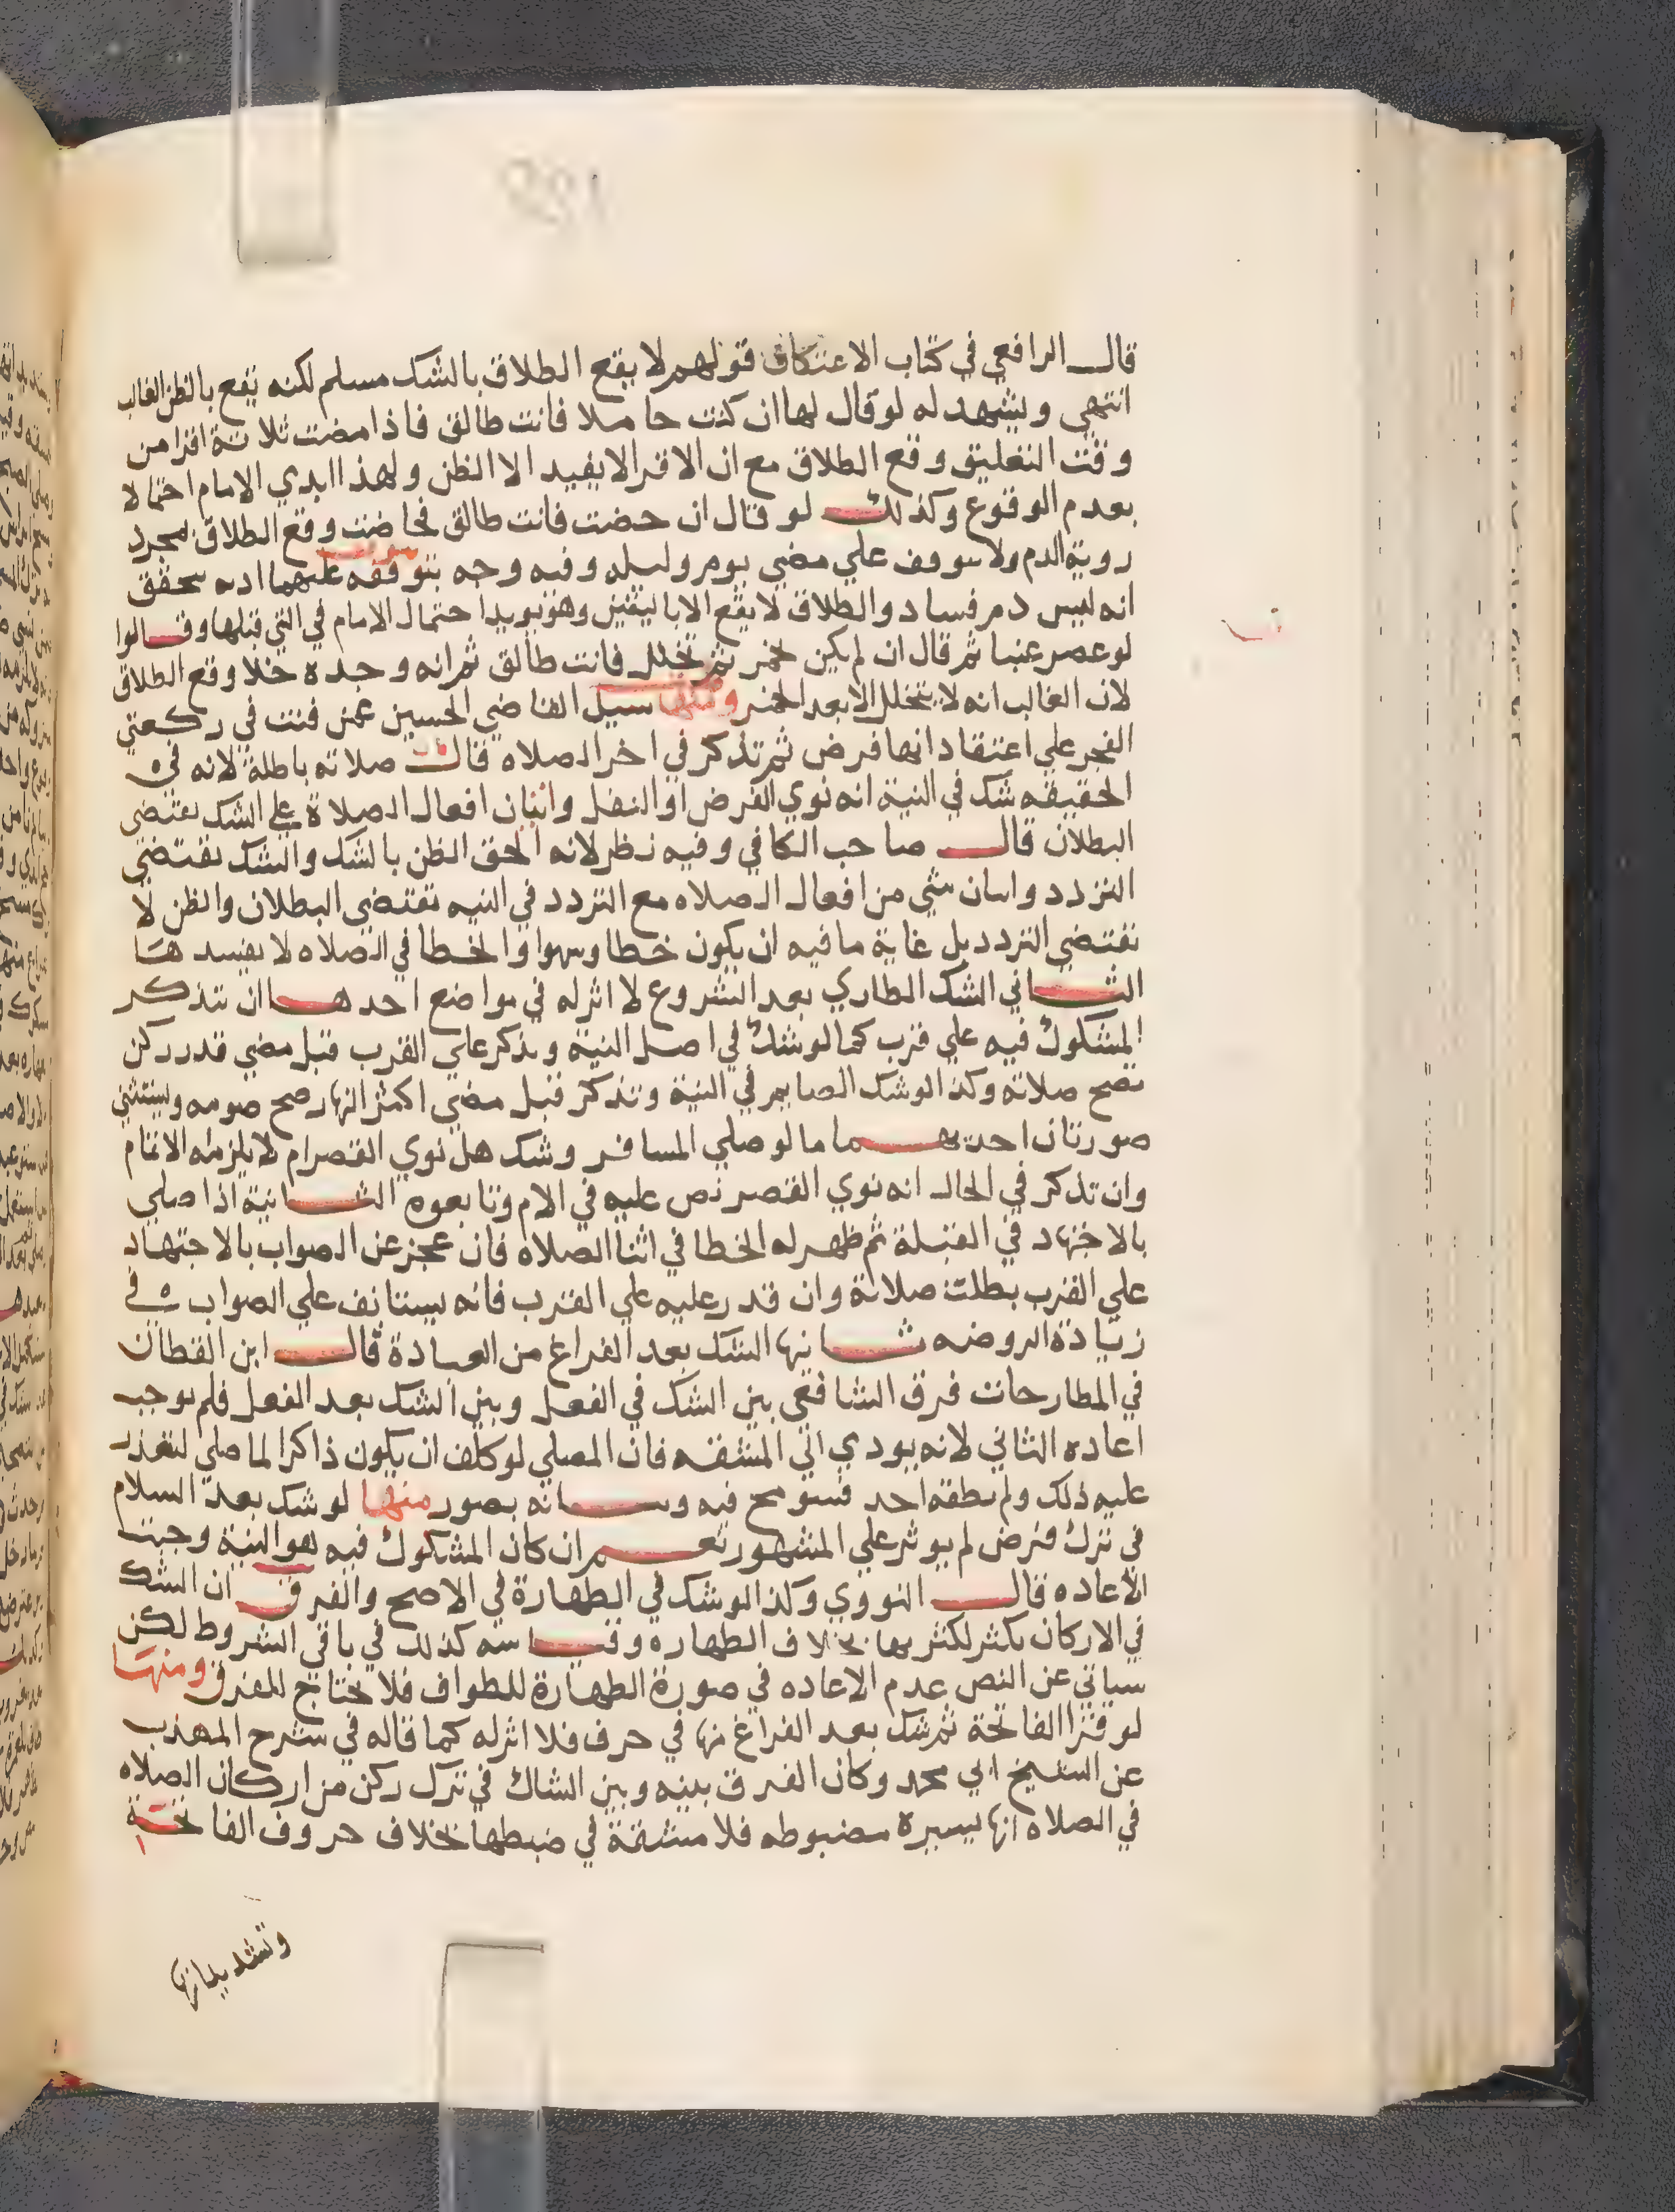 قال الرافعي في كتاب الاعتكاف قولهم لا يقع الطلاق بالشك مسلم لكنه يقع بالظن الغالب
انتهى ويشهد له لو قال لها ان كنت حاملا فانت طالق فاذا مضت ثلاثة اقرا من
وقت التعليق وقع الطلاق مع ان الاقرا لا يفيد الا الظن ولهذا ابدي الامام احتمالا
بعدم الوقوع وكذلك لو قال ان حضت فانت طالق فحاضت وقع الطلاق بمجرد
روية الدم ولا يتوقف علي مضي يوم وليله وفيه وجه بتوقفه عليهما اذ به يتحقق
انه ليس دم فساد والطلاق لا يقع الا باليقين وهو يويد احتمال الامام في التي قبلها وقالوا
لو عصر عنبا ثم قال ان لم يكن تخمر ثم تخلل فانت طالق ثم انه وجده خلا وقع الطلاق
لان الغالب انه لا يتخلل الا بعد التخمر ومنها سيل القاضي الحسين عمن قنت في ركعتي
الفجر علي اعتقاد انها فرض ثم تذكر في اخر الصلاه قال صلاته باطلة لانه في
الحقيقه شك في النية انه نوي الفرض او النفل واتيان افعال الصلاة على الشك يقتضي
البطلان قال صاحب الكافي وفيه نظر لانه الحق الظن بالشك والشك يقتضي
التردد واتيان شي من افعال الصلاه مع التردد في النيه يقتضي البطلان والظن لا
يقتضي التردد بل غاية ما فيه ان يكون خطا وسهوا والخطا في الصلاه لا يفسدها
الثاني الشك الطاري بعد الشروع لا اثر له في مواضع احدها ان يتذكر
المشكوك فيه علي قرب كما لو شك في اصل النية وتذكر علي القرب قبل مضي قدر ركن
تصح صلاته وكذا لو شك الصايم في النية وتذكر قبل مضي اكثر النهار صح صومه ويستثني
صورتان احديهما ما لو صلي المسافر وشك هل نوي القصر ام لا يلزمه الاتمام
وان تذكر في الحال انه نوي القصر نص عليه في الام وتابعوه الثانية اذا صلي
بالاجتهاد في القبلة ثم ظهر له الخطا في اثنا الصلاه فان عجز عن الصواب بالاجتهاد
علي القرب بطلت صلاته وان قدر عليه علي القرب فانه يستانف علي الصواب في
زيادة الروضه ثانيها الشك بعد الفراغ من العبادة قال ابن القطان
في المطارحات فرق الشافعي بين الشك في الفعل وبين الشك بعد الفعل فلم يوجب
اعاده الثاني لانه يودي الي المشقه فان المصلي لو كلف ان يكون ذاكرا لما صلي لتعذر
عليه ذلك ولم يطقه احد فسومح فيه وبيانه بصور منها لو شك بعد السلام
في ترك فرض لم يوثر علي المشهور نعم ان كان المشكوك فيه هو النية وجبت
الاعاده قال النووي وكذا لو شك في الطهارة في الاصح والفرق ان الشك
في الاركان يكثر لكثرتها بخلاف الطهاره وقياسه كذلك في باقي الشروط لكن
سياتي عن النص عدم الاعاده في صورة الطهارة للطواف فلا يحتاج للفرق ومنها
لو قرا الفاتحة ثم شك بعد الفراغ منها في حرف فلا اثر له كما قاله في شرح المهذب
عن الشيخ ابي محمد وكان الفرق بينه وبين الشاك في ترك ركن من اركان الصلاه
في الصلاه انها يسيرة مضبوطه فلا مشقة في ضبطها بخلاف حروف الفاتحة
وتشديداتها